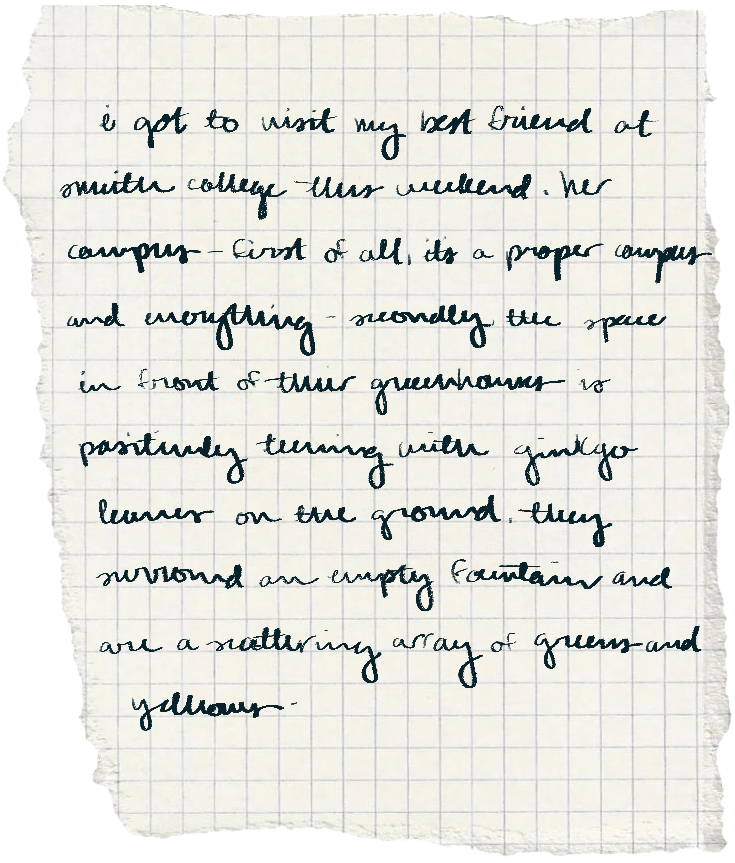 i got to visit my best friend at
smith college this weekend. her
campus - first of all, it's a proper campus
and everything - secondly, the space
in front of their greenhouses is
positively teeming with ginkgo
leaves on the ground. they
surround an empty fountain and
are a scattering array of greens and
yellows.